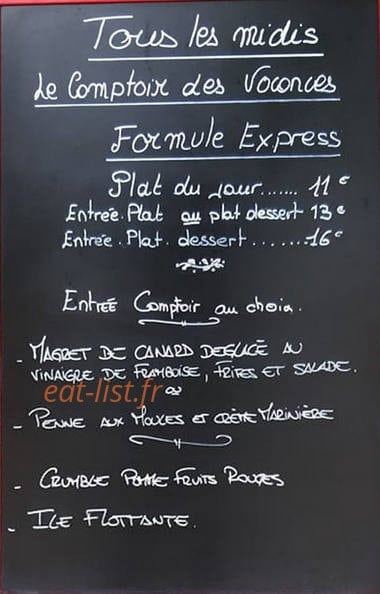 Tous les midis
Le Comptoir des Voconces
Formule Express
Plat du jour....... 11€
Entrée.Plat ou plat dessert 13€
Entrée.Plat. dessert........16€
Entrée Comptoir au choix.
- MAGRET DE CANARD DEGLACÉ AU
VINAIGRE DE FRAMBOISE, FRITES ET SALADE.
eat-list.fr
ou
- PENNE AUX MOULES ET CRÈME MARINIÈRE
- CRUMBLE POMME FRUITS ROUGES
- ILE FLOTTANTE.